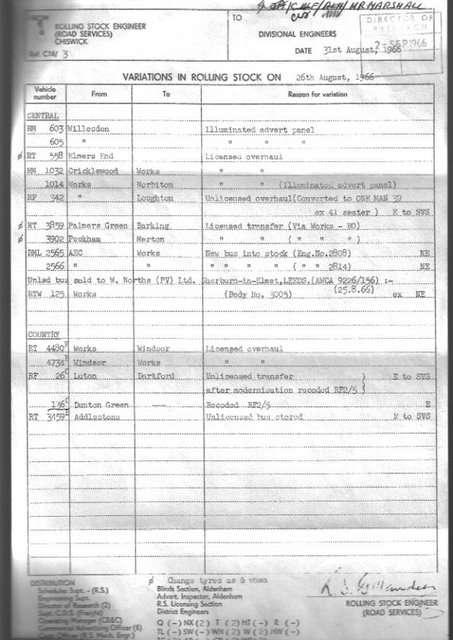 ROLLING STOCK ENGINEER
(ROAD SERVICES)
CHISWICK
Ref. C16/ 3
TO
DIVISIONAL ENGINEERS
DATE 31st August, 1966
DIRECTOR OF
SEP 1966
VARIATIONS IN ROLLING STOCK ON 26th August, 1966
Vehicle number From To Reason for variation
CENTRAL
RM 603 Willesden Illuminated advert panel
605 " " " "
ø RT 558 Elmers End Licensed overhaul
RM 1032 Cricklewood Works " "
1014 Works Norbiton " " (Illuminated advert panel)
RF 342 " Loughton Unlicensed overhaul(Converted to ONE MAN 39
ex 41 seater ) E to SVS
ø RT 3859 Palmers Green Barking Licensed transfer (Via Works - HO)
ø 3902 Peckham Merton " " ( " " )
RML 2565 AEC Works New bus into stock (Eng.No.2808) NE
2566 " " " " " " ( " " 2814) NE
Unlsd bus sold to W. Norths (PV) Ltd. Sherburn-in-Elmet,LEEDS.(AWCA 9226/156) :-
(25.8.66)
RTW 125 Works (Body No. 3005) ex NE
COUNTRY
RT 4480 Works Windsor Licensed overhaul
4734 Windsor Works " "
RF 26 Luton Dartford Unlicensed transfer ) E to SVS
after modernisation recoded RF2/5 )
136 Dunton Green --- Recoded RF2/5 E
RT 3159 Addlestone Unlicensed bus stored E to SVS
ø Change tyres as & when
DISTRIBUTION
Schedules Supt. - (R.S.)
Engineering Supt.
Director of Research (2)
Supt. C.D.S. (Freight)
Operating Manager (CB&C)
Commercial Advertising Officer (6)
Blinds Section, Aldenham
Advert. Inspector, Aldenham
R.S. Licensing Section
District Engineers
ROLLING STOCK ENGINEER
(ROAD SERVICES)
Q (-) NX (2) T (2) HT (-) R (-)
TL (-) SW (-) WN (2) W (2) HW (-)